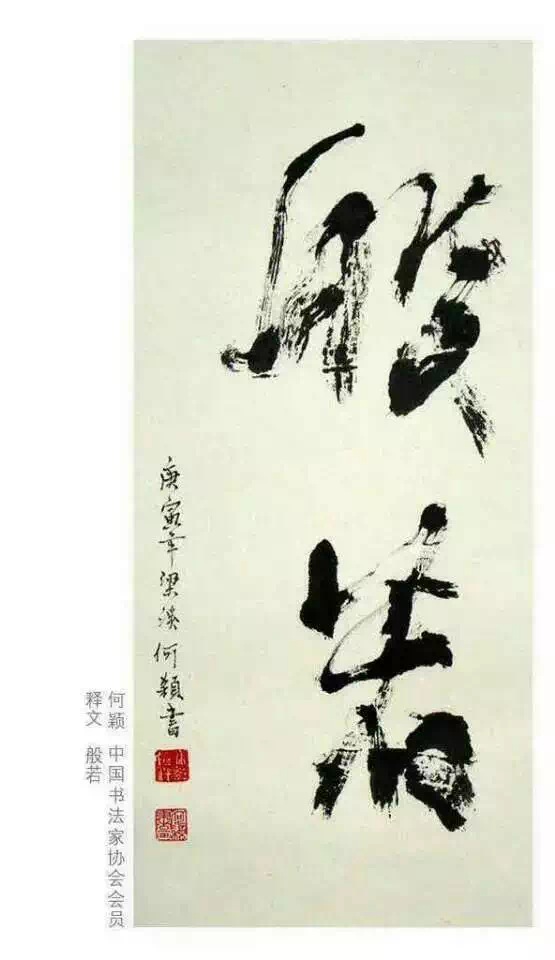 般若
庚寅年梁溪何颖書
何颖 中国书法家协会会员
释文 般若